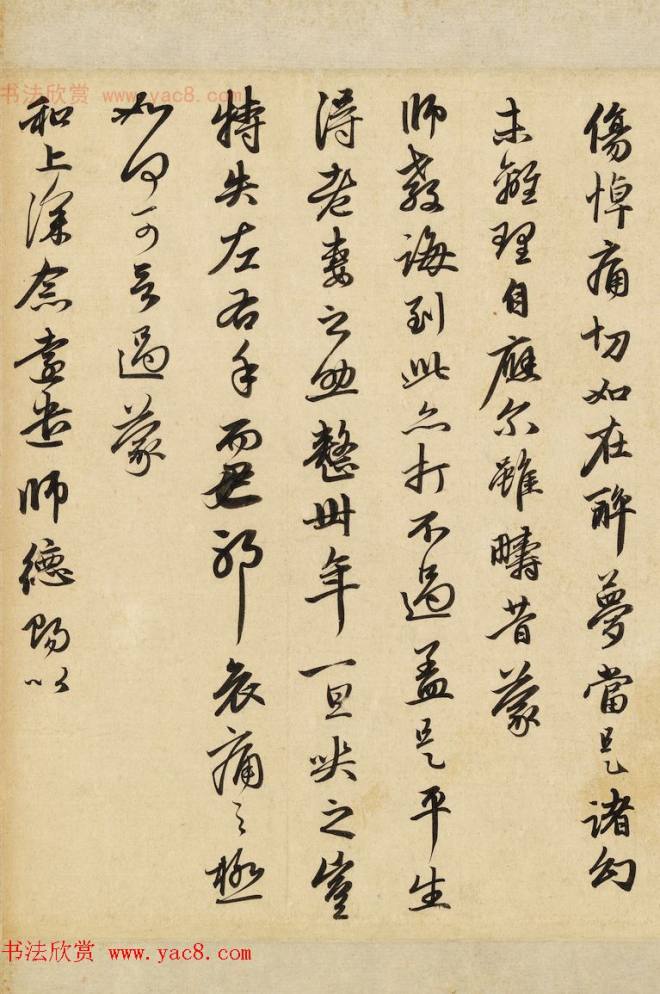 傷悼痛切如在醉夢當是諸幻
未離理自應尔雖疇昔蒙
師教誨到此亦打不過盖是平生
得老妻之助整卅年一旦哭之豈
特失左右手而已耶哀痛之極
如何可言過蒙
和上深念遠遣師德賜以
书法欣赏 www.yac8.com
书法欣赏 www.yac8.com